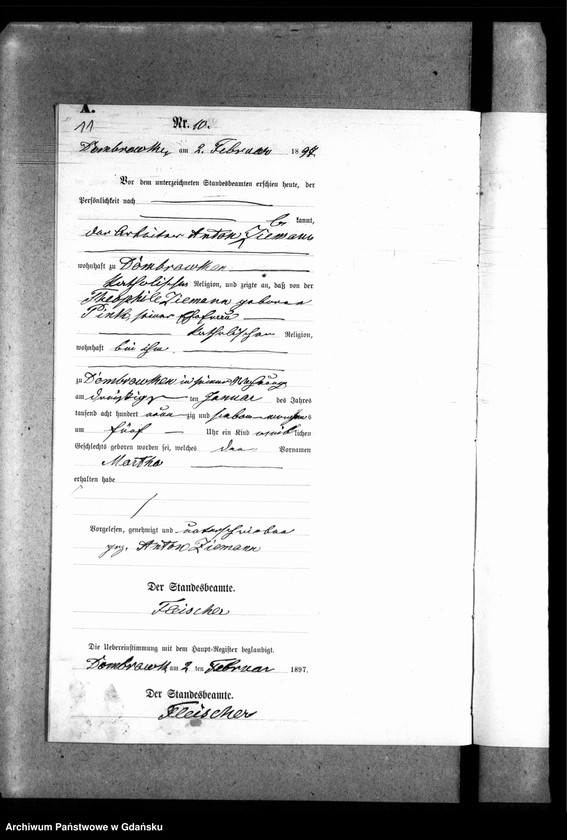 A.
11
Nr. 10.
Dombrowken am 2. Februar 1897
Vor dem unterzeichneten Standesbeamten erschien heute, der
Persönlichkeit nach
kannt,
der Arbeiter Anton Ziemann
wohnhaft zu Dombrowken
katholischer Religion, und zeigte an, daß von der
Theophile Ziemann geborene
seiner Ehefrau
katholischer Religion,
wohnhaft bei ihm
zu Dombrowken in seiner Wohnung
am dreißigsten Januar des Jahres
tausend acht hundert neunzig und sieben
um fünf Uhr ein Kind weiblichen
Geschlechts geboren worden sei, welches den Vornamen
Martha
erhalten habe
Vorgelesen, genehmigt und unterschrieben
gez. Anton Ziemann
Der Standesbeamte.
Fleischer
Die Uebereinstimmung mit dem Haupt-Register beglaubigt.
Dombrowk am 2 ten Februar 1897.
Der Standesbeamte.
Fleischer
Archiwum Państwowe w Gdańsku